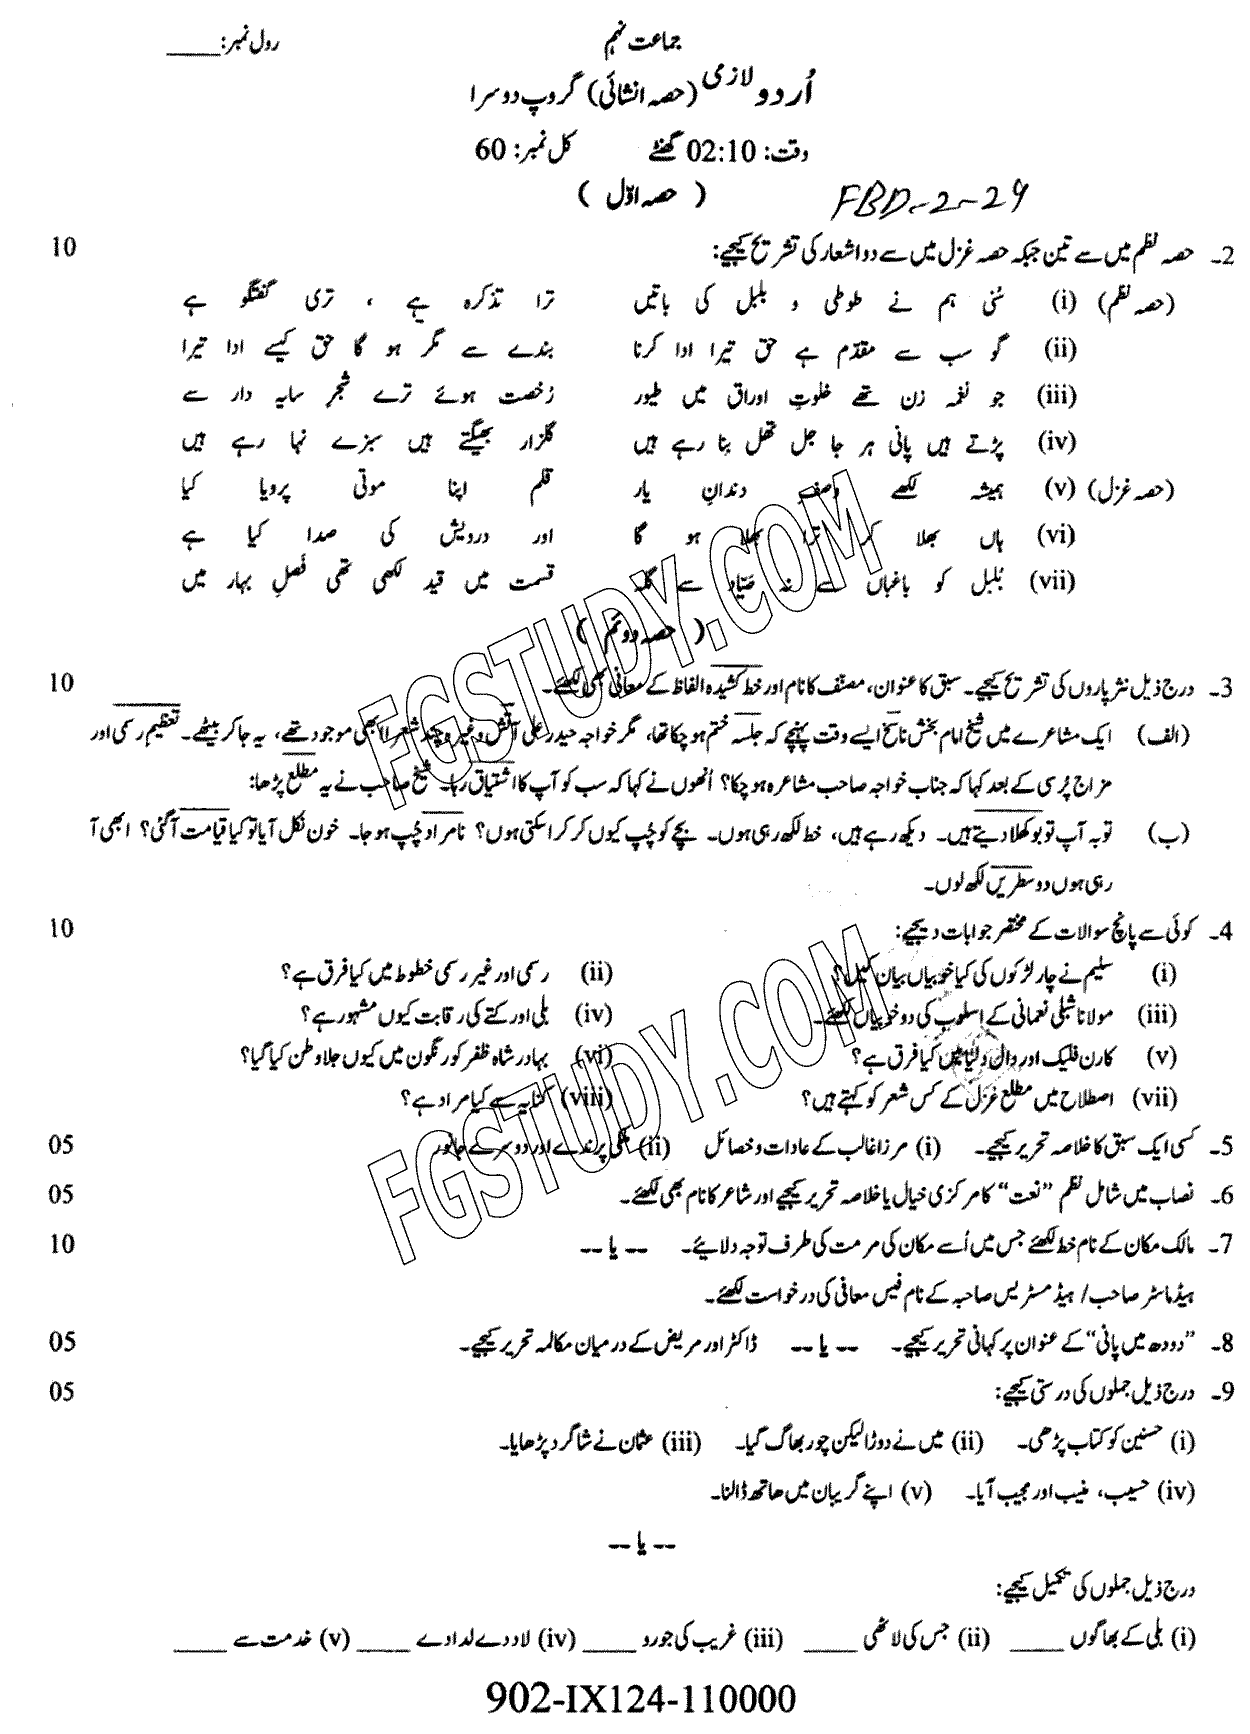 جماعت نہم رول نمبر: ____
اُردو لازمی (حصہ انشائی) گروپ دوسرا
وقت: 02:10 گھنٹے کل نمبر: 60
( حصہ اوّل )
FBD-2-24
2۔ حصہ نظم میں سے تین جبکہ حصہ غزل میں سے دو اشعار کی تشریح کیجیے: 10
(حصہ نظم) (i) سُنی ہم نے طوطی و بلبل کی باتیں ترا تذکرہ ہے ، تری گفتگو ہے
(ii) گو سب سے مقدّم ہے حق تیرا ادا کرنا بندے سے مگر ہو گا حق کیسے ادا تیرا
(iii) جو نغمہ زن تھے خلوتِ اوراق میں طیور رُخصت ہوئے ترے شجرِ سایہ دار سے
(iv) پڑتے ہیں پانی ہر جا جل تھل بنا رہے ہیں گلزار بھیگتے ہیں سبزے نہا رہے ہیں
(حصہ غزل) (v) ہمیشہ لکھے وصفِ دندانِ یار قلم اپنا موتی پرویا کیا
(vi) ہاں بھلا کر ترا بھلا ہو گا اور درویش کی صدا کیا ہے
(vii) بُلبل کو باغباں سے نہ صیّاد سے گلہ قسمت میں قید لکھی تھی فصلِ بہار میں
( حصہ دوئم )
3۔ درج ذیل نثر پاروں کی تشریح کیجیے۔ سبق کا عنوان، مصنّف کا نام اور خط کشیدہ الفاظ کے معانی بھی لکھئے۔ 10
(الف) ایک مشاعرے میں شیخ امام بخش ناسخ ایسے وقت پہنچے کہ جلسہ ختم ہو چکا تھا، مگر خواجہ حیدر علی آتش وغیرہ چند شعرا ابھی موجود تھے، یہ جا کر بیٹھے۔ تعظیم رسمی اور
مزاج پُرسی کے بعد کہا کہ جناب خواجہ صاحب مشاعرہ ہو چکا؟ اُنھوں نے کہا کہ سب کو آپ کا اشتیاق رہا۔ شیخ صاحب نے یہ مطلع پڑھا:
(ب) توبہ آپ تو بوکھلا دیتے ہیں۔ دیکھ رہے ہیں، خط لکھ رہی ہوں۔ بچے کو چُپ کیوں کر کرا سکتی ہوں؟ نامراد چُپ ہو جا۔ خون نکل آیا تو کیا قیامت آ گئی؟ ابھی آ
رہی ہوں دو سطریں لکھ لوں۔
4۔ کوئی سے پانچ سوالات کے مختصر جوابات دیجیے: 10
(i) سلیم نے چار لڑکوں کی کیا خوبیاں بیان کیں؟ (ii) رسمی اور غیر رسمی خطوط میں کیا فرق ہے؟
(iii) مولانا شبلی نعمانی کے اسلوب کی دو خوبیاں لکھئے۔ (iv) بلی اور کتے کی رقابت کیوں مشہور ہے؟
(v) کارن فلیک اور دال دلیا میں کیا فرق ہے؟ (vi) بہادر شاہ ظفر کو رنگون میں کیوں جلاوطن کیا گیا؟
(vii) اصطلاح میں مطلع غزل کے کس شعر کو کہتے ہیں؟ (viii) کنایہ سے کیا مراد ہے؟
5۔ کسی ایک سبق کا خلاصہ تحریر کیجیے۔ (i) مرزا غالب کے عادات و خصائل (ii) ملکی پرندے اور دوسرے جانور 05
6۔ نصاب میں شامل نظم ”نعت“ کا مرکزی خیال یا خلاصہ تحریر کیجیے اور شاعر کا نام بھی لکھئے۔ 05
7۔ مالک مکان کے نام خط لکھئے جس میں اُسے مکان کی مرمت کی طرف توجہ دلائیے۔ -- یا -- 10
ہیڈ ماسٹر صاحب/ ہیڈ مسٹریس صاحبہ کے نام فیس معافی کی درخواست لکھئے۔
8۔ ”دودھ میں پانی“ کے عنوان پر کہانی تحریر کیجیے۔ -- یا -- ڈاکٹر اور مریض کے درمیان مکالمہ تحریر کیجیے۔ 05
9۔ درج ذیل جملوں کی درستی کیجیے: 05
(i) حسنین کو کتاب پڑھی۔ (ii) میں نے دوڑا لیکن چور بھاگ گیا۔ (iii) عثمان نے شاگرد پڑھایا۔
(iv) حسیب، منیب اور مجیب آیا۔ (v) اپنے گریبان میں ہاتھ ڈالنا۔
-- یا --
درج ذیل جملوں کی تکمیل کیجیے:
(i) بلی کے بھاگوں ____ (ii) جس کی لاٹھی ____ (iii) غریب کی جورو ____ (iv) لاد دے لدا دے ____ (v) خدمت سے ____
902-IX124-110000
FGSTUDY.COM
FGSTUDY.COM